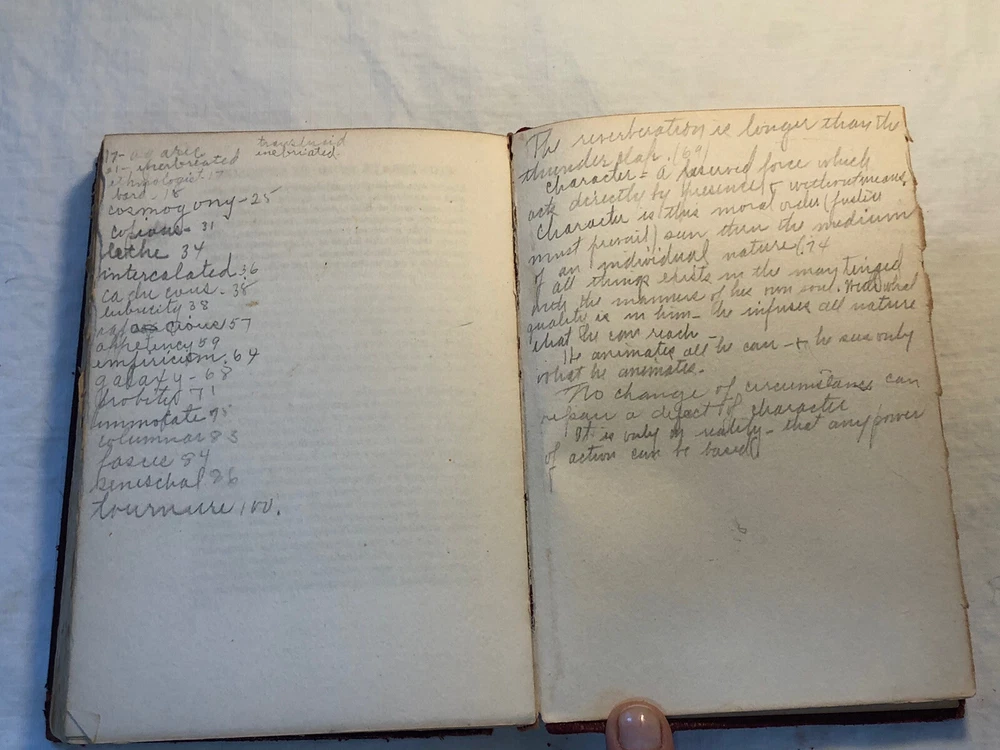 17- agaric
translucid
21- inerbreated
inebriated.
ethnologist. 17
bard - 18
cosmogony - 25
copious - 31
Lethe 34
intercalated 36
caducous - 38
lubricity 38
57
appetency 59
empiricism. 64
galaxy - 68
probites 71
immolate 75
columnar 83
fasces 84
seneschal 86
tournure 100.
The reverberation is longer than the
thunder clap. (69)
Character = a reserved force which
acts directly by presence & without means.
Character is this moral order (justice
must prevail) seen thru the medium
of an individual nature (74
all things exists in the man tinged
with the manners of his own soul. With what
quality is in him - he infuses all nature
that he can reach -
He animates all he can - & he sees only
what he animates.
No change of circumstances can
repair a defect of character
It is only on reality - that any power
of action can be based